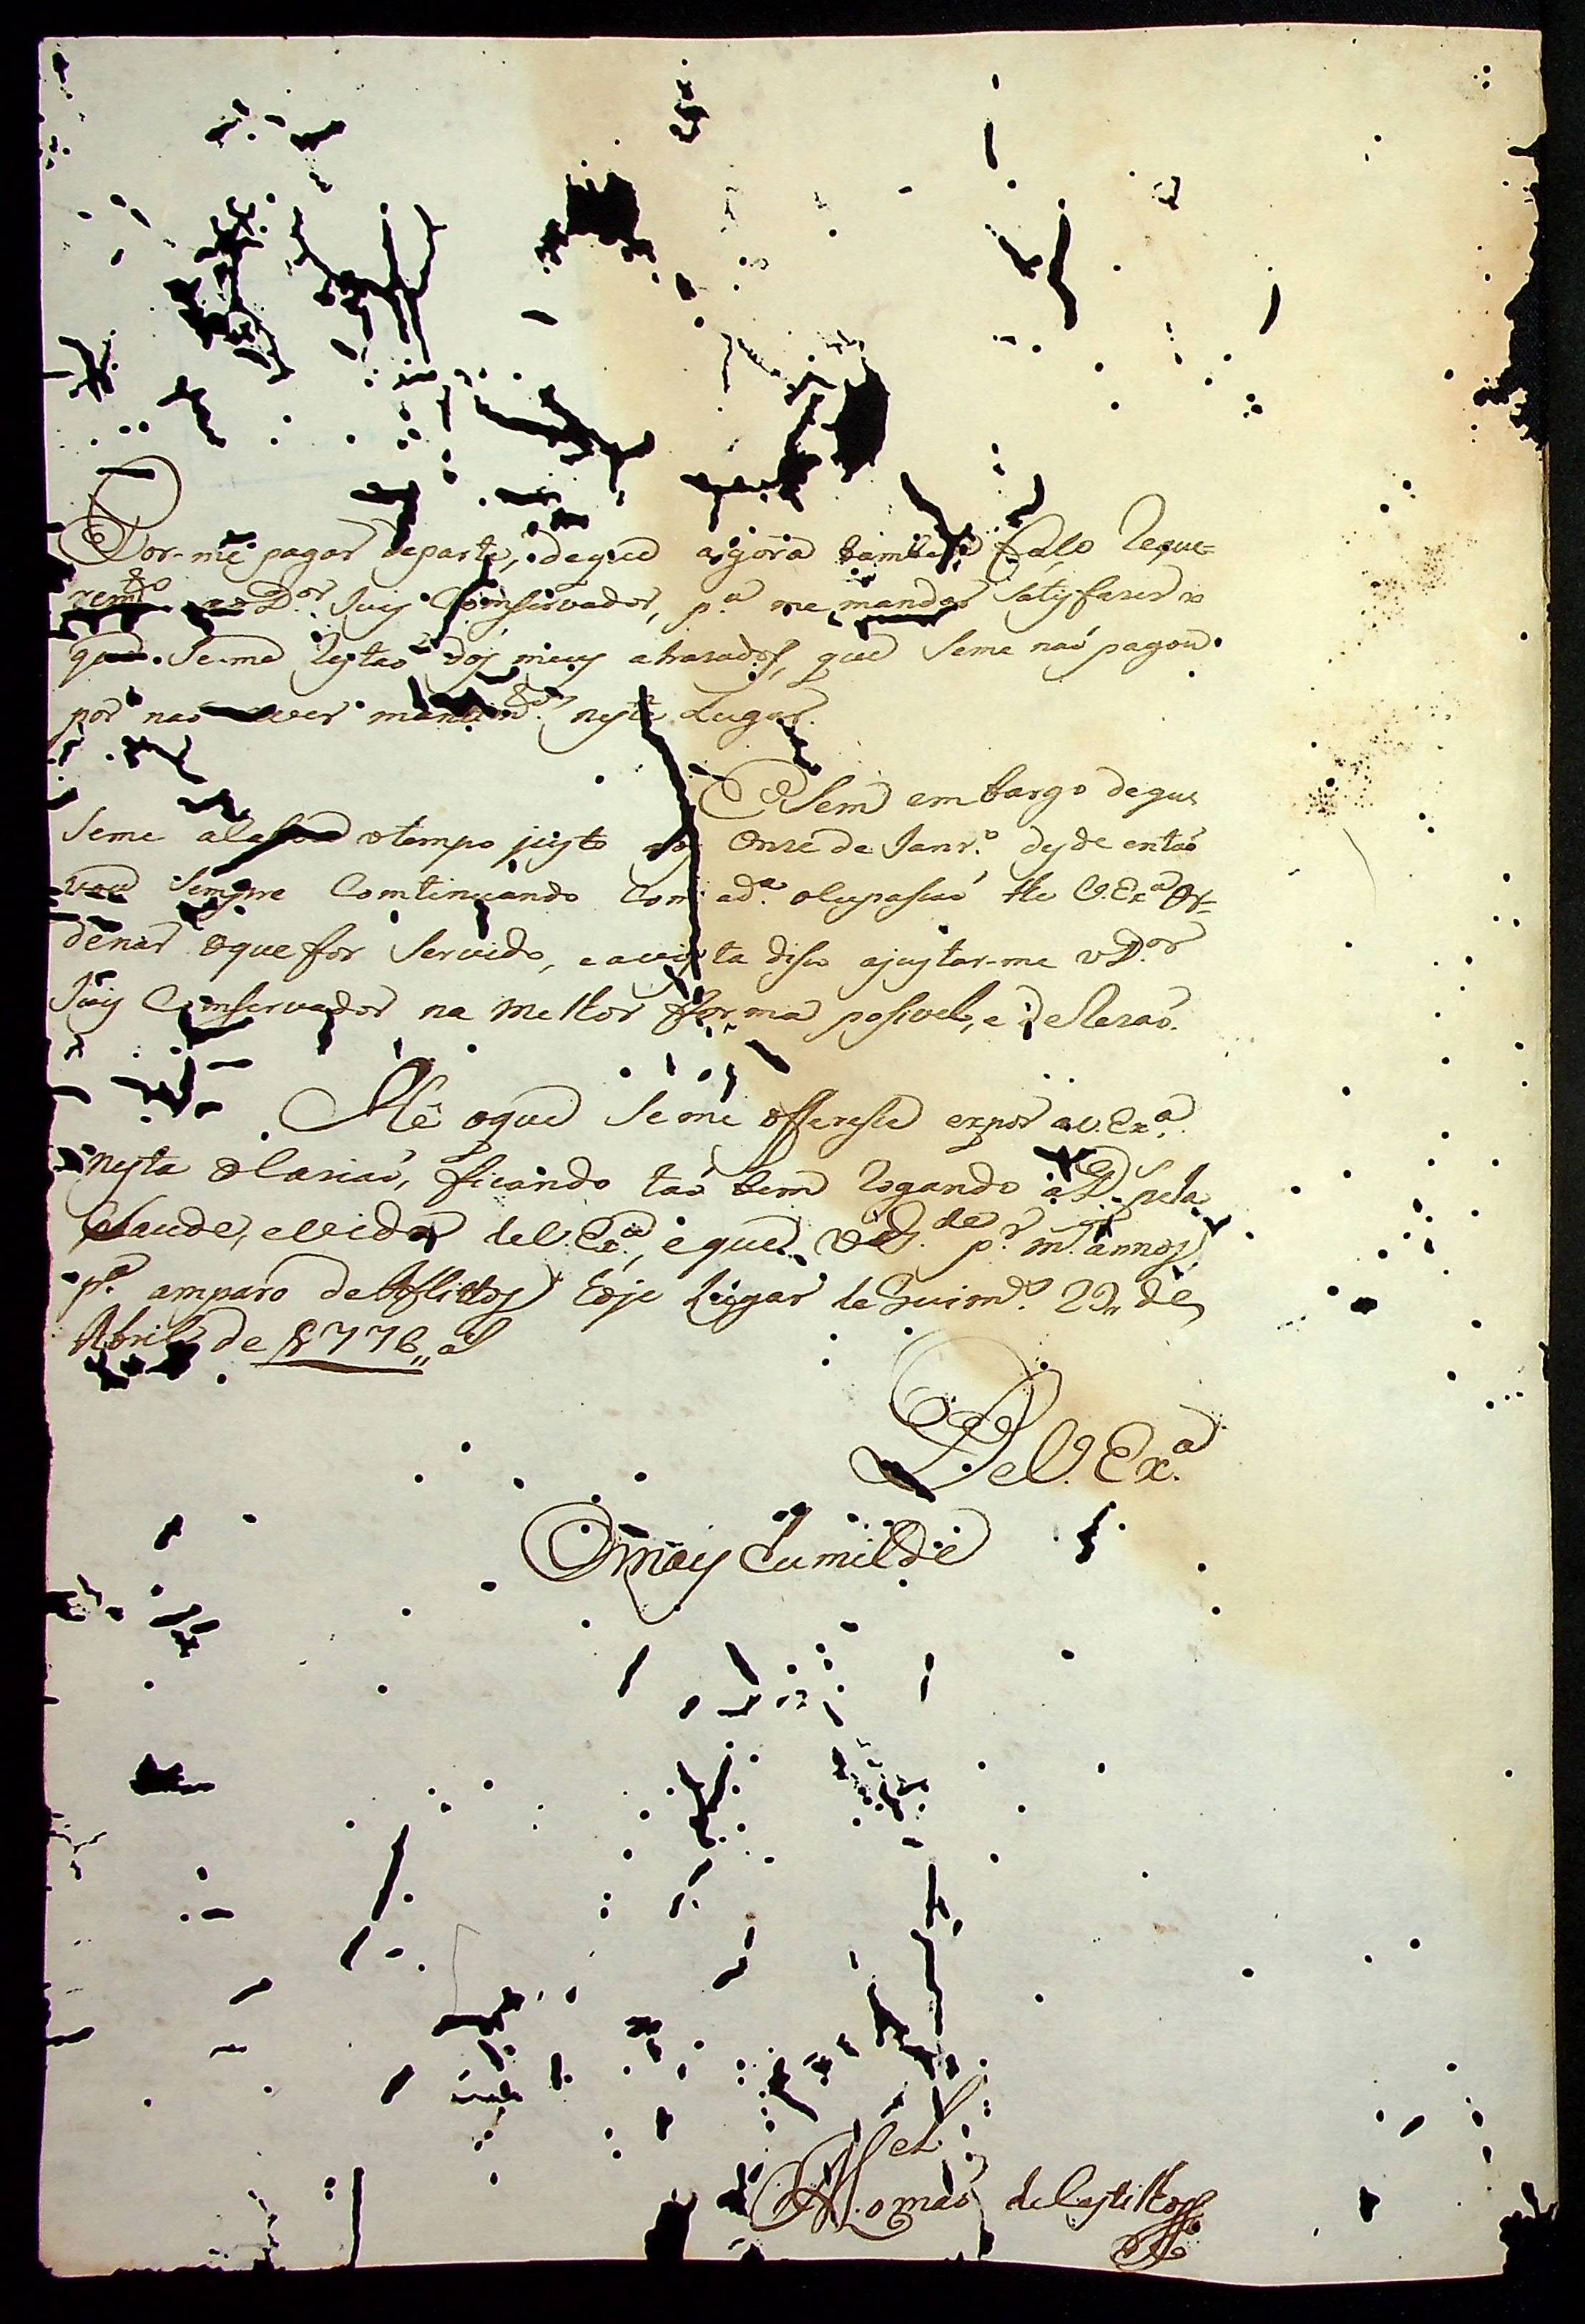 Por-me pagar departe, deque agora tambem faço Reque-
rem.to ao D.or Juiz Conservador, p.a me mandar satisfazer o
que se-me restaõ dos meus atrasados, que seme naõ pagou
por nao aver mantim.tos neste Lugar.
E Sem embargo deque
seme acabou o tempo justo aos Onze de Janr.o desde entaõ
vou sempre Continuando Com ad.a ocupasaõ the V. Ex.a Or-
denar oque for servido, eavista diso ajustar-me o D.or
Juiz Conservador na melhor fforma posivel, e deRezaõ.
He oque seme offerese expor aV. Ex.a
nesta ocasiaõ, ficando taõ bem rogando a D.s pela
Saude, evida deV. Ex.a, eque D.s G.de p.r m.s annos,
p.a amparo de Afflittos hoje Lugar de Guim.es 29,, de
Abril de 1776,, a
DeV. Ex.a
O mais humilde
M.el
Thomás de Castilho